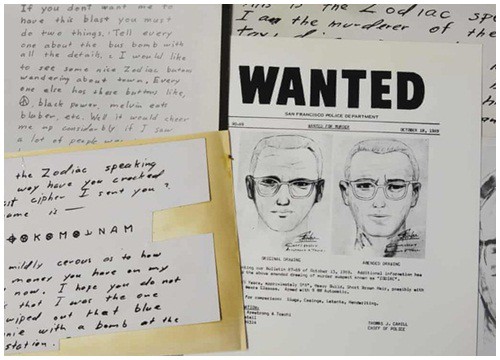 If you don't want me to
have this blast you must
do two things. Tell every
one about the bus bomb with
all the details. I would like
to see some nice Zodiac butons
wandering about town. Every
one else has these buttons like,
☮, black power, melvin eats
bluber, etc. Well it would cheer
me up considerbly if I saw
a lot of people
the Zodiac speaking
way have you cracked
cipher I sent you ?
is —
K M N A M
mildly cerous as to how
money you have on my
now. I hope you do not
that I was the one
wiped out that blue
with a bomb at the
station.
is the Zodiac
I am the murderer of the
WANTED
SAN FRANCISCO POLICE DEPARTMENT
WANTED FOR MURDER OCTOBER 18, 1969
ORIGINAL DRAWING AMENDED DRAWING
Bulletin 87-69 of October 13, 1969. Additional information has
the above amended drawing of murder suspect known as "ZODIAC".
Years, Approximately 5'8", Heavy Build, Short Brown Hair, possibly with
Glasses. Armed with 9 MM Automatic.
for comparison: Slugs, Casings, Latents, Handwriting.
Armstrong & Toschi
THOMAS J. CAHILL
CHIEF OF POLICE